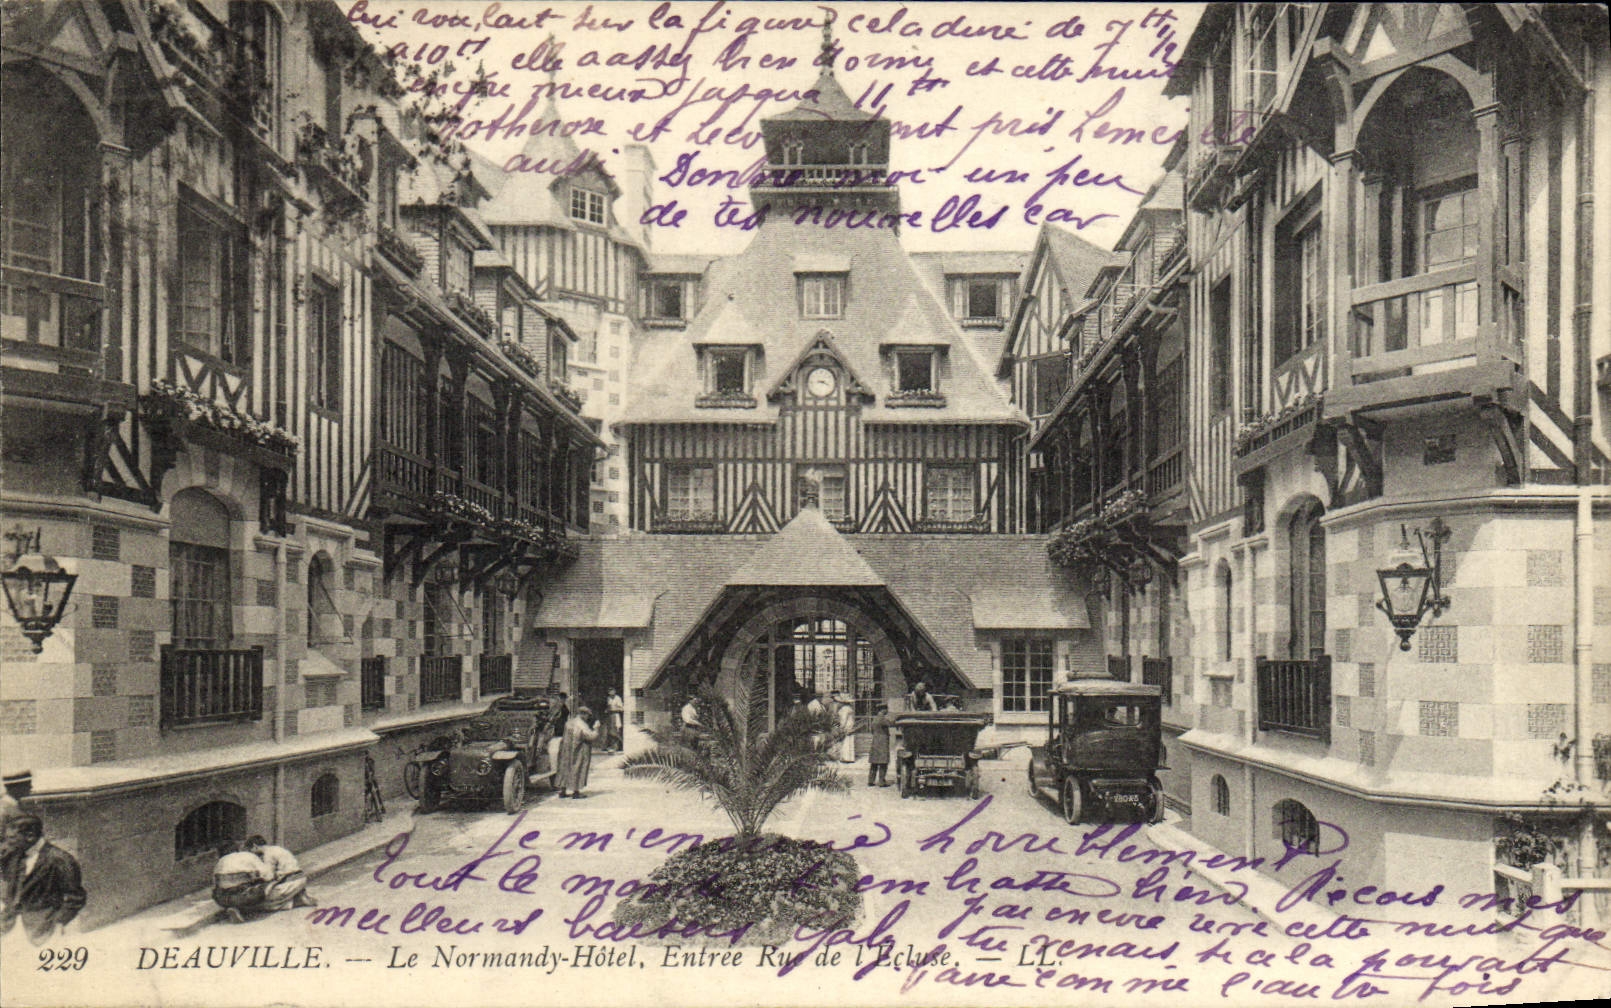 lui roulait sur la figure cela a duré de 7 h 1/2
a 10 h elle a assez bien dormi et cette nuit
encore mieux jusqua 11 h
et ont pris
aussi Donne moi un peu
de tes nouvelles car
je m'ennuie horriblement
Tout le monde t'embrasse bien. Recois mes
meilleurs baisers Gaby
j'ai encore revé cette nuit que
tu venais si cela pouvait
faire comme l'autre fois
229 DEAUVILLE. — Le Normandy-Hôtel, Entrée Rue de l'Écluse. — LL.